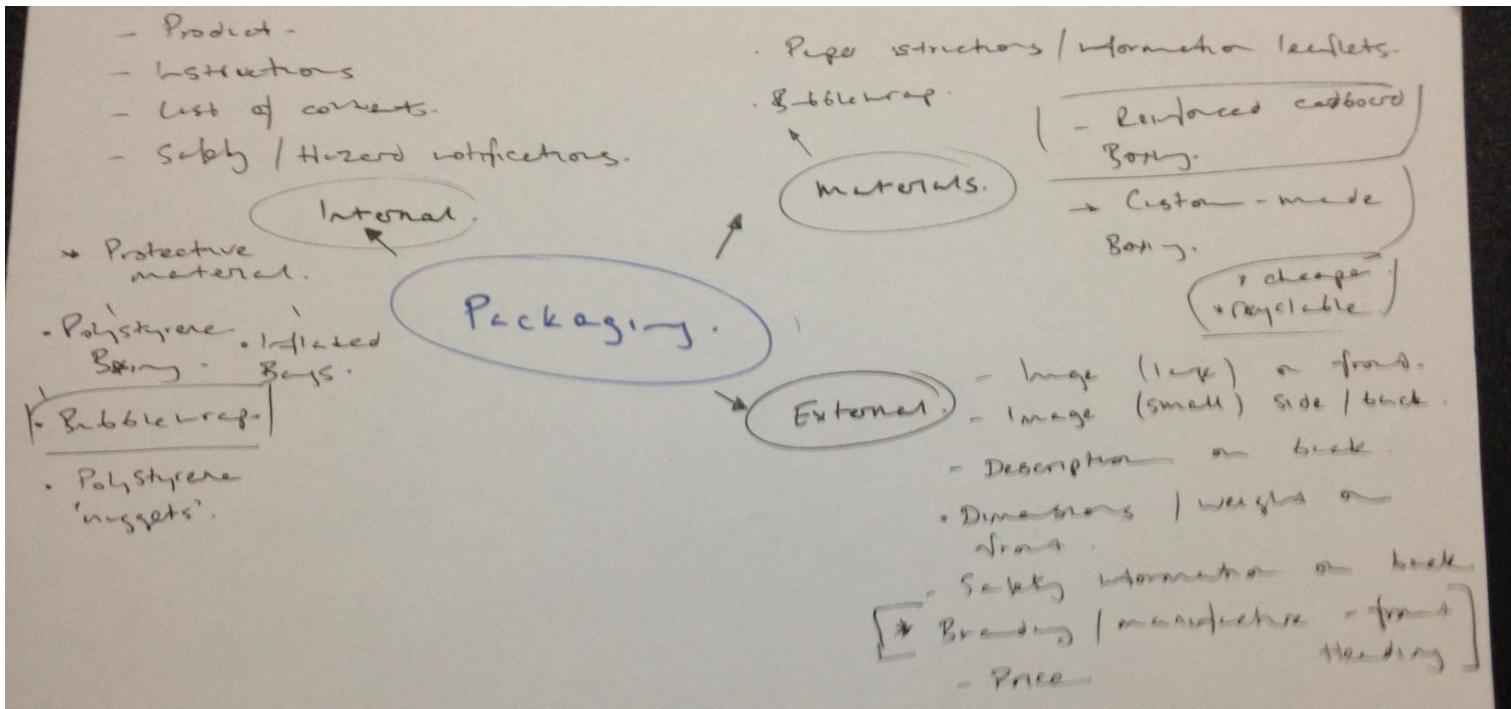 - Product -
- Instructions
- List of contents.
- Safety / Hazard notifications.
Internal.
* Protective
material.
• Polystyrene
Boxing.
• Inflated
Bags.
• Bubblewrap.
• Polystyrene
'nuggets'.
Packaging.
• Paper istructions / information leaflets.
• Bubblewrap.
Materials.
- Reinforced cadboard
Boxing.
→ Custom-made
Boxing.
* cheaper
* recyclable
External.
- Image (large) on front.
- Image (small) side / back.
- Description on back.
• Dimensions / weight on
front.
- Safety information on back
[* Branding / manufacture - front
Heading]
- Price